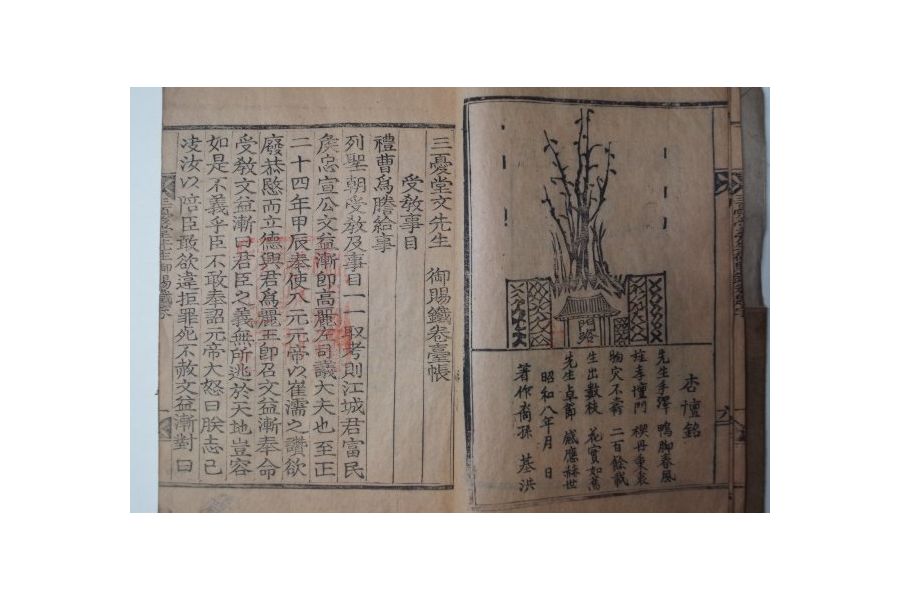 杏壇銘
先生手澤 鴨脚春風
旌孝壇門 楔丹
物灾不 二百餘載
生出數枝 花實如
先生卓節 感應赫世
昭和八年月 日
著作裔孫 基洪
三憂堂文先生 御賜鐵卷臺帳
受敎事目
禮曹爲謄給事
列聖朝受敎及事目一一取考則江城君富民
矦忠宣公文益漸卽高麗左司議大夫也至正
二十四年甲辰奉使入元元帝以崔濡之讚欲
廢恭愍而立德興君爲麗王卽召文益漸奉命
受敎文益漸曰君臣之義無所逃於天地豈容
如是不義乎臣不敢奉詔元帝大怒曰朕志已
汝以陪臣敢欲違拒罪死不赦文益漸對曰